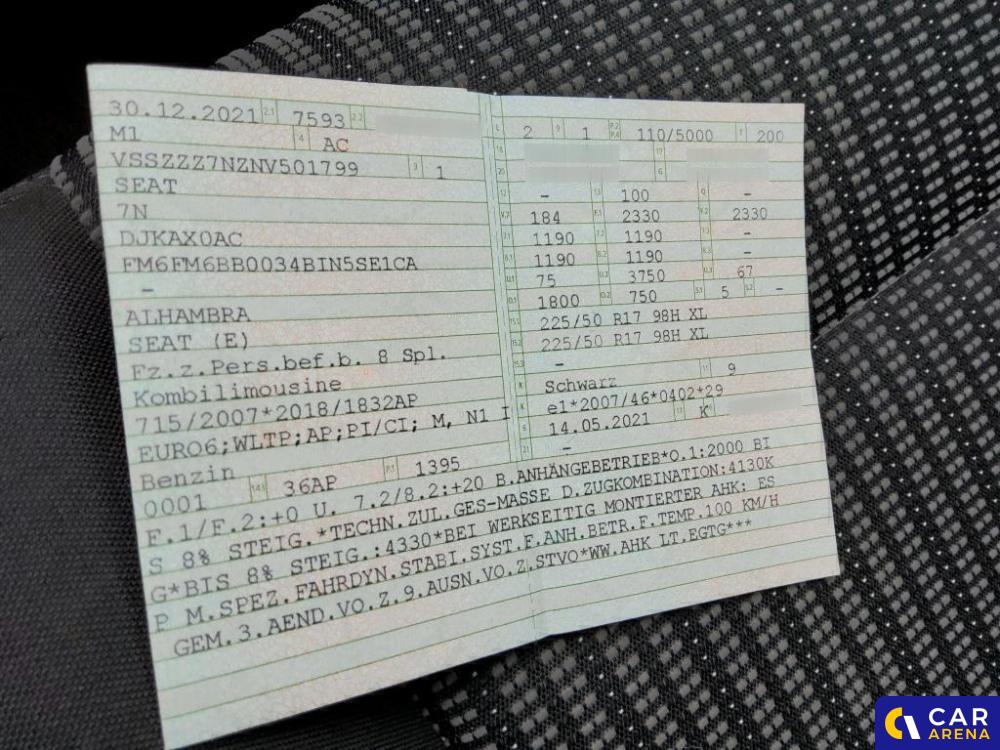 30.12.2021 2.1 7593 2.2
M1 4 AC
VSSZZZ7NZNV501799 3 1
SEAT
7N
DJKAX0AC
FM6FM6BB0034BIN5SE1CA
–
ALHAMBRA
SEAT (E)
Fz.z.Pers.bef.b. 8 Spl.
Kombilimousine
715/2007*2018/1832AP
EURO6;WLTP;AP;PI/CI; M, N1 I
Benzin
0001 14.1 36AP P.1 1395
L 2 9 1 P.2 P.4 110/5000 T 200
18
20 G
12 – 13 100 Q –
V.7 184 F.1 2330 F.2 2330
7.1 1190 7.2 1190 7.3 –
8.1 1190 8.2 1190 8.3 –
U.1 75 U.2 3750 U.3 67
O.1 1800 O.2 750 S.1 5 S.2 –
15.1 225/50 R17 98H XL
15.2 225/50 R17 98H XL
15.3 –
R Schwarz 11 9
K e1*2007/46*0402*29
6 14.05.2021 17 K
21 –
F.1/F.2:+0 U. 7.2/8.2:+20 B.ANHÄNGEBETRIEB*O.1:2000 BI
S 8% STEIG.*TECHN.ZUL.GES-MASSE D.ZUGKOMBINATION:4130K
G*BIS 8% STEIG.:4330*BEI WERKSEITIG MONTIERTER AHK: ES
P M.SPEZ.FAHRDYN.STABI.SYST.F.ANH.BETR.F.TEMP.100 KM/H
GEM.3.AEND.VO.Z.9.AUSN.VO.Z.STVO*WW.AHK LT.EGTG***
CAR
ARENA